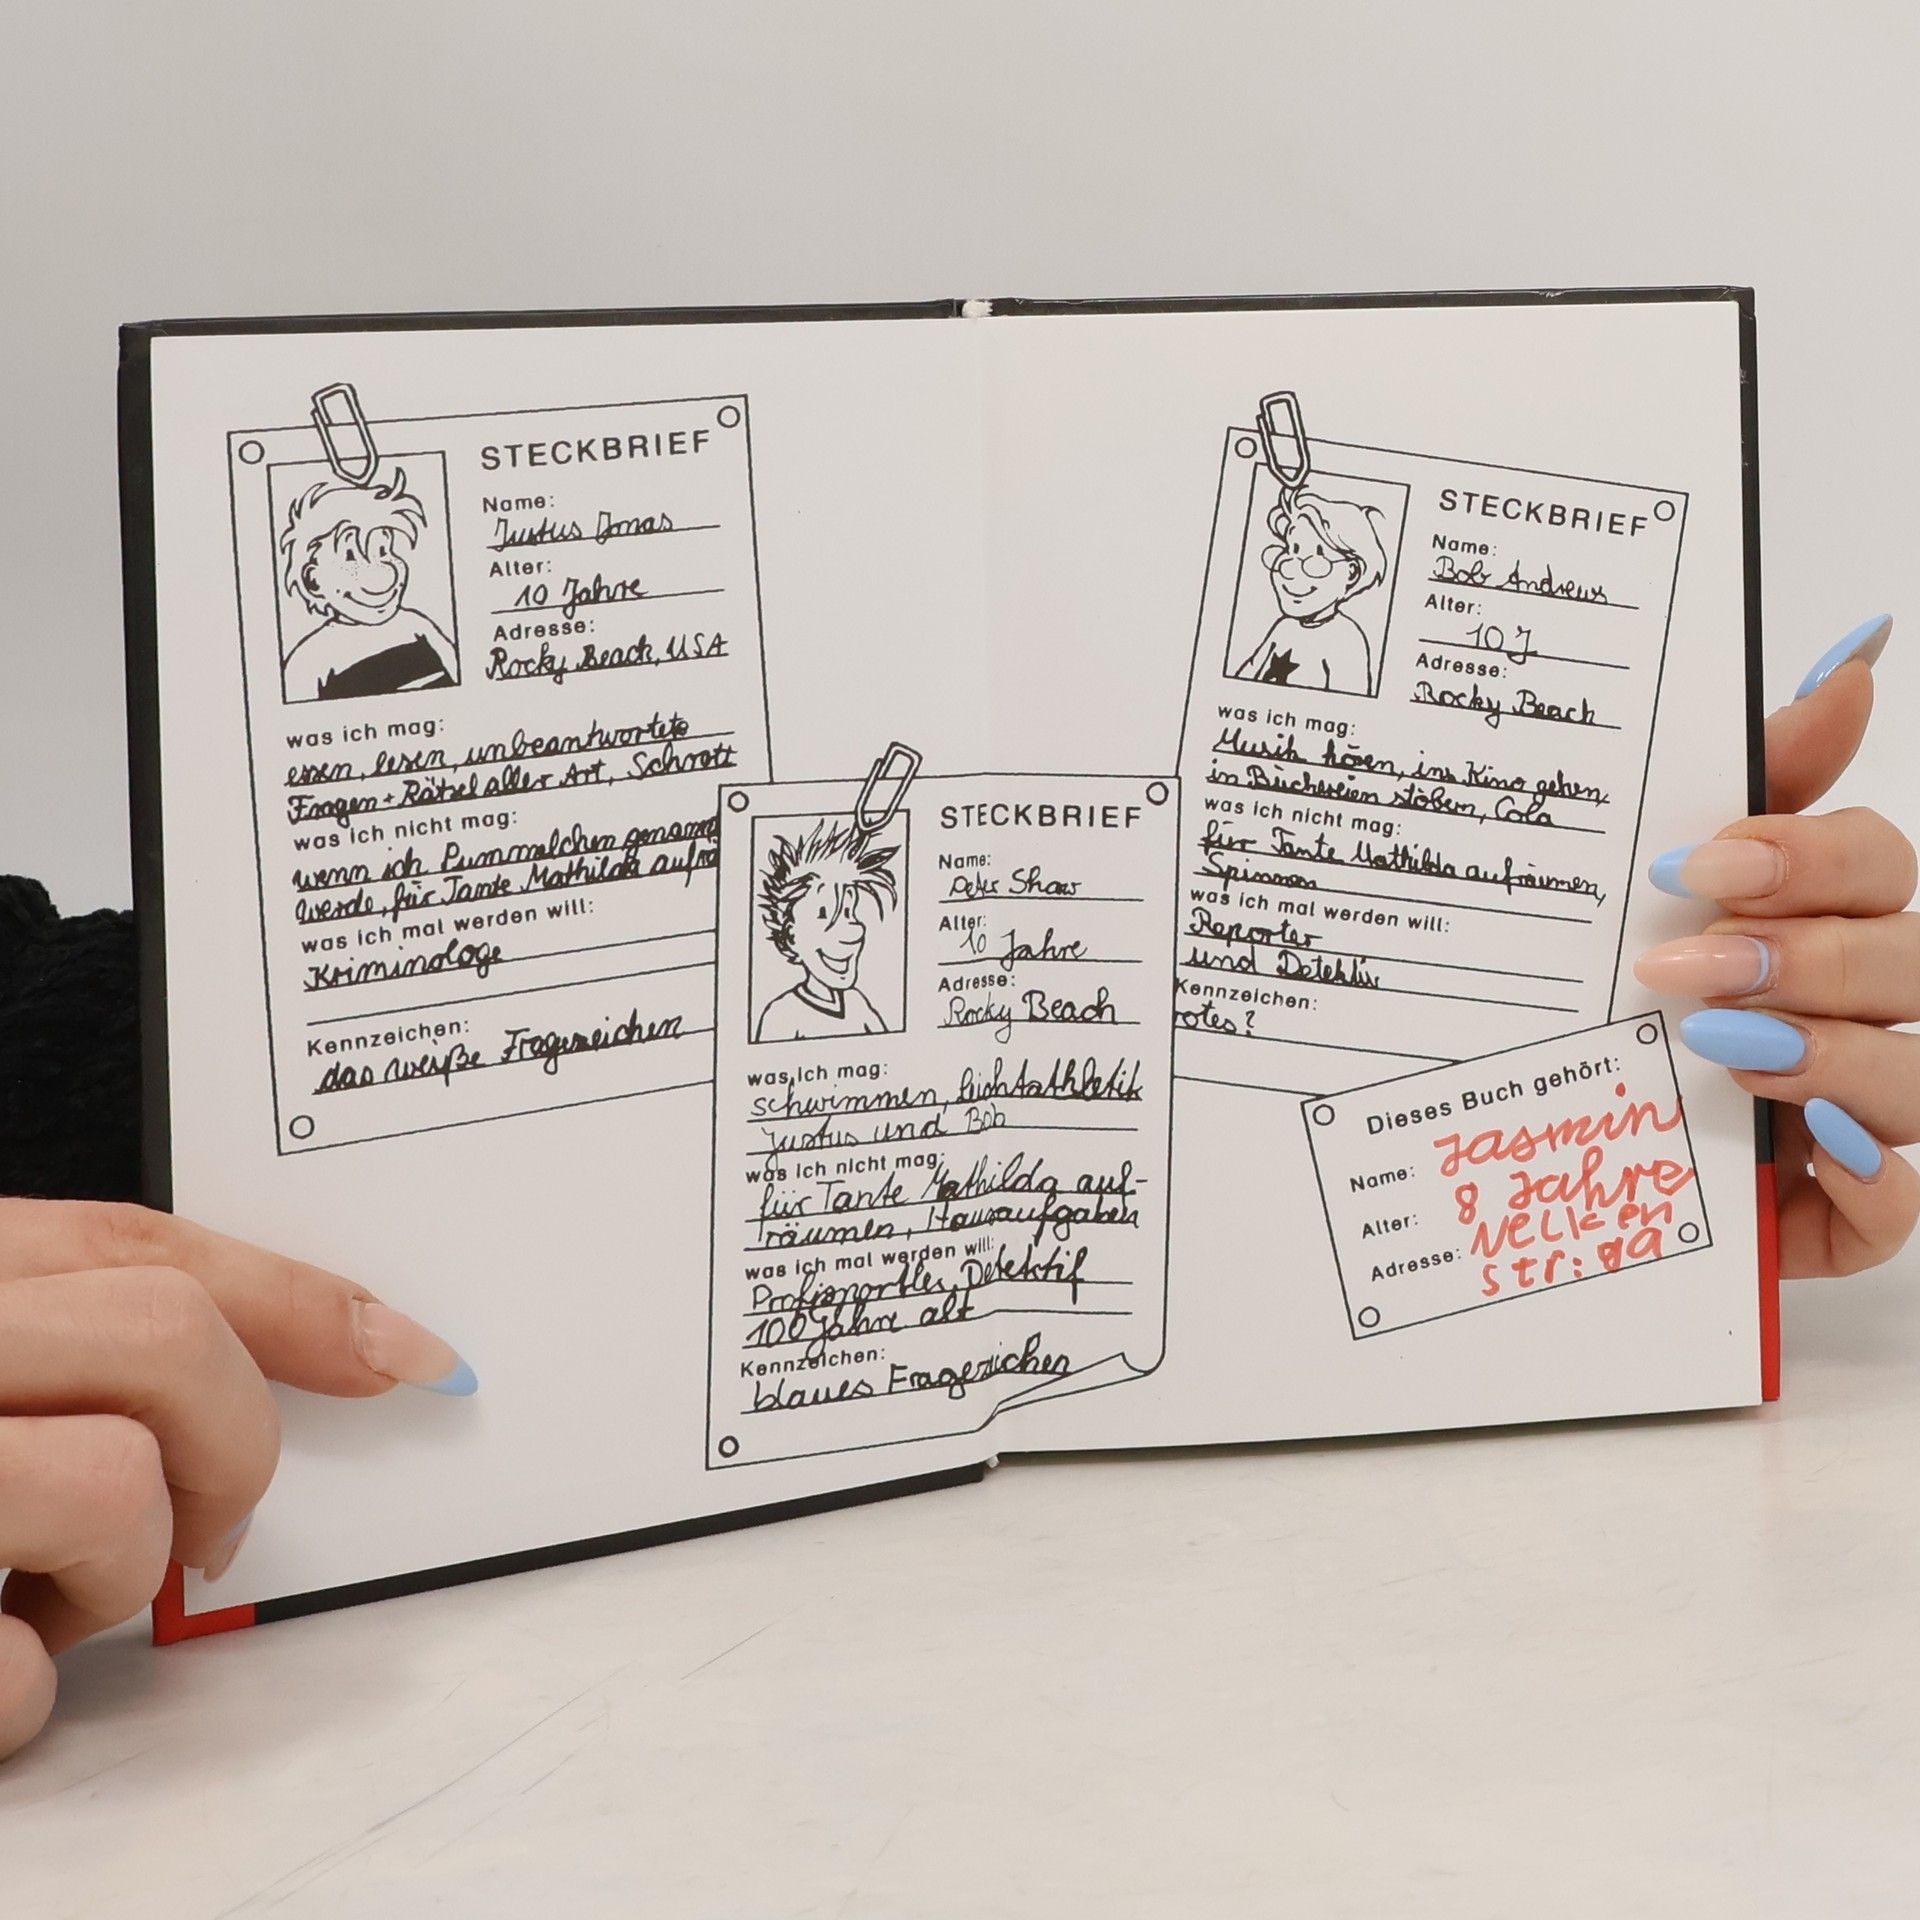 STECKBRIEF
Name:
Justus Jonas
Alter:
10 Jahre
Adresse:
Rocky Beach, USA
was ich mag:
essen, lesen, unbeantwortete
Fragen + Rätsel aller Art, Schrott
was ich nicht mag:
wenn ich Pummelchen genannt
werde, für Tante Mathilda aufrä
was ich mal werden will:
Kriminologe
Kennzeichen:
das weiße Fragezeichen
STECKBRIEF
Name:
Peter Shaw
Alter:
10 Jahre
Adresse:
Rocky Beach
was ich mag:
schwimmen, Leichtathletik
Justus und Bob
was ich nicht mag:
für Tante Mathilda auf-
räumen, Hausaufgaben
was ich mal werden will:
Profisportler, Detektif
100 Jahre alt
Kennzeichen:
blaues Fragezeichen
STECKBRIEF
Name:
Bob Andrews
Alter:
10 J
Adresse:
Rocky Beach
was ich mag:
Musik hören, ins Kino gehen,
in Büchereien stöbern, Cola
was ich nicht mag:
für Tante Mathilda aufräumen,
Spinnen
was ich mal werden will:
Reporter
und Detektiv
Kennzeichen:
rotes?
Dieses Buch gehört:
Name: Jasmin
Alter: 8 Jahre
Adresse: Nelken
str: 9a